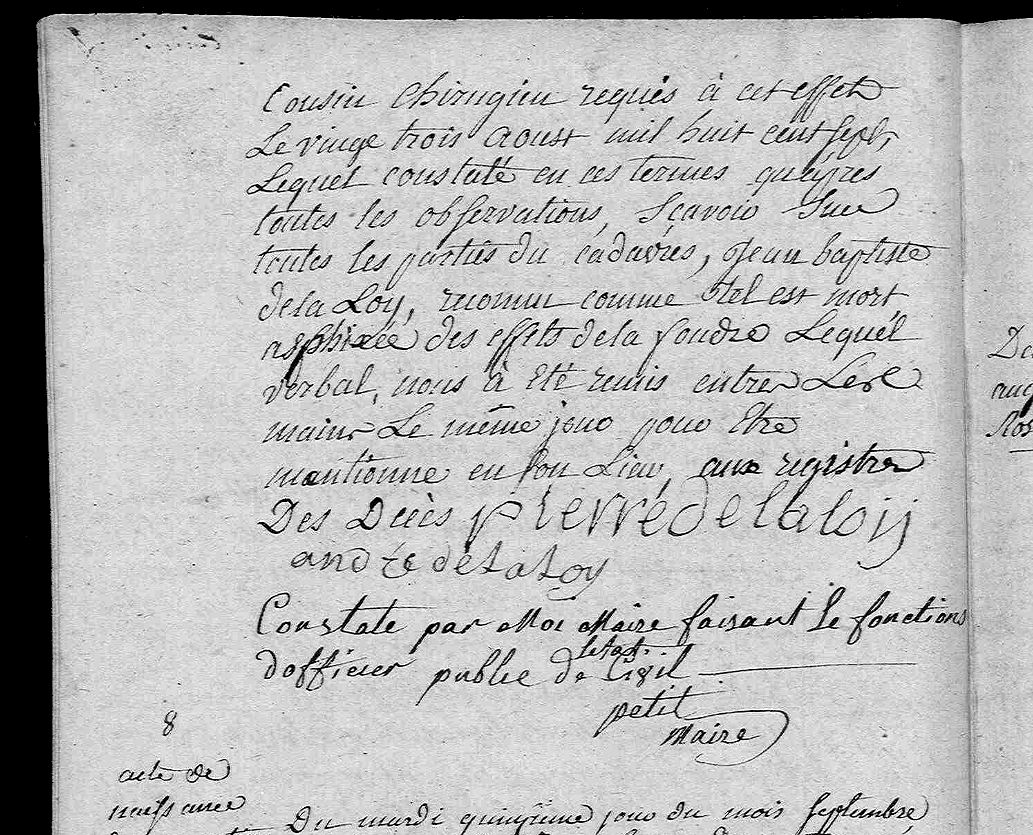 Cousin chirugien requis à cet effet
Le vinge trois aoust mil huit cent sept,
Lequel constaté en ces termes qu'apres
toutes les observations, Sçavoir Que
toutes les partiés du cadavres, Jean baptiste
dela Loy, reconnu comme tel est mort
asphixée des effets dela foudre Lequél
verbal, nous à Eté remis entre Les
mains Le même jour pour Etre
mantionne en son Lieu, aux registre
Des Decès pierre delaloy
andré delaloy
Constate par Moi Maire faisant Le fonctions
dofficier public de letat Civil
petit
Maire
8
acte de
naissance
Du mardi quinzieme jour du mois septembre
Da
aug
Ros